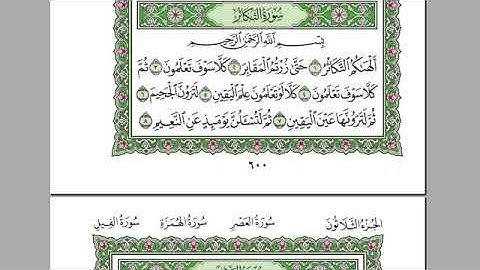 سُورَةُ التَّكَاثُرِ
بِسْمِ ٱللَّهِ ٱلرَّحْمَٰنِ ٱلرَّحِيمِ
أَلْهَىٰكُمُ ٱلتَّكَاثُرُ ١ حَتَّىٰ زُرْتُمُ ٱلْمَقَابِرَ ٢ كَلَّا سَوْفَ تَعْلَمُونَ ٣ ثُمَّ
كَلَّا سَوْفَ تَعْلَمُونَ ٤ كَلَّا لَوْ تَعْلَمُونَ عِلْمَ ٱلْيَقِينِ ٥ لَتَرَوُنَّ ٱلْجَحِيمَ ٦
ثُمَّ لَتَرَوُنَّهَا عَيْنَ ٱلْيَقِينِ ٧ ثُمَّ لَتُسْـَٔلُنَّ يَوْمَئِذٍ عَنِ ٱلنَّعِيمِ ٨
٦٠٠
الجُزْءُ الثَّلَاثُونَ سُورَةُ العَصْرِ سُورَةُ الهُمَزَةِ سُورَةُ الفِيلِ